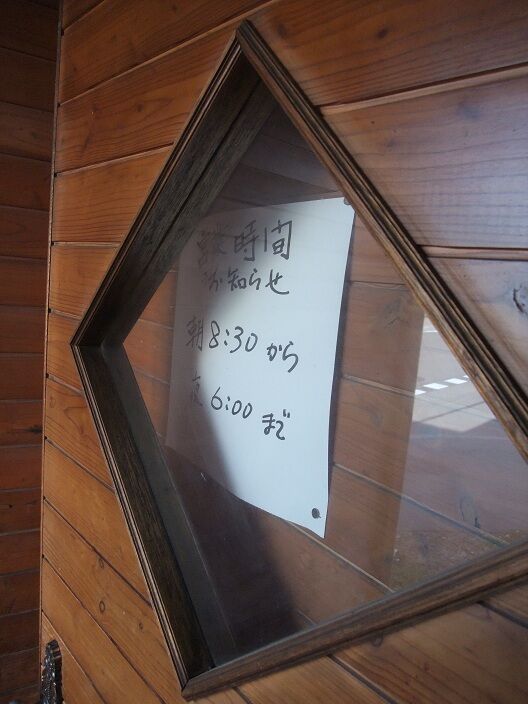 営業時間
お知らせ
朝8:30から
夜6:00まで